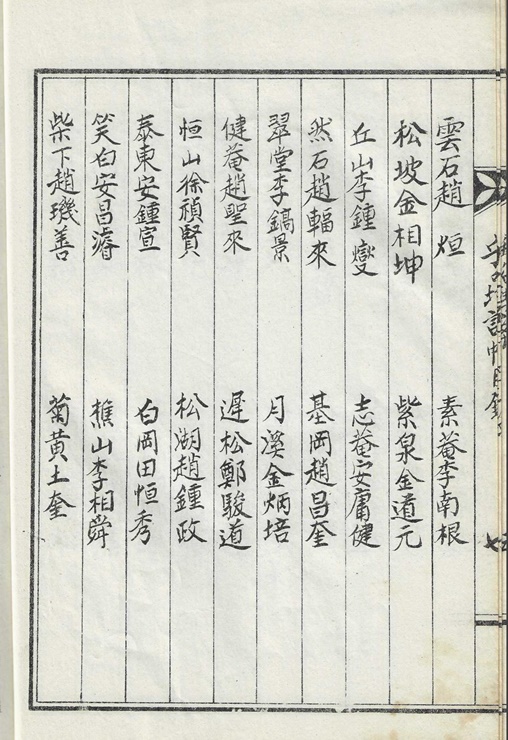 雲石趙 烜
素菴李南根
松坡金相坤
紫泉金道元
丘山李鍾燮
志菴安庸健
然石趙輻來
基岡趙昌奎
翠堂李鎬景
月溪金炳培
健菴趙聖來
遲松鄭駿道
恒山徐禎賢
松湖趙鍾政
泰東安鍾宣
白岡田恒秀
笑白安昌濬
樵山李相舜
柴下趙璣善
菊黃土奎